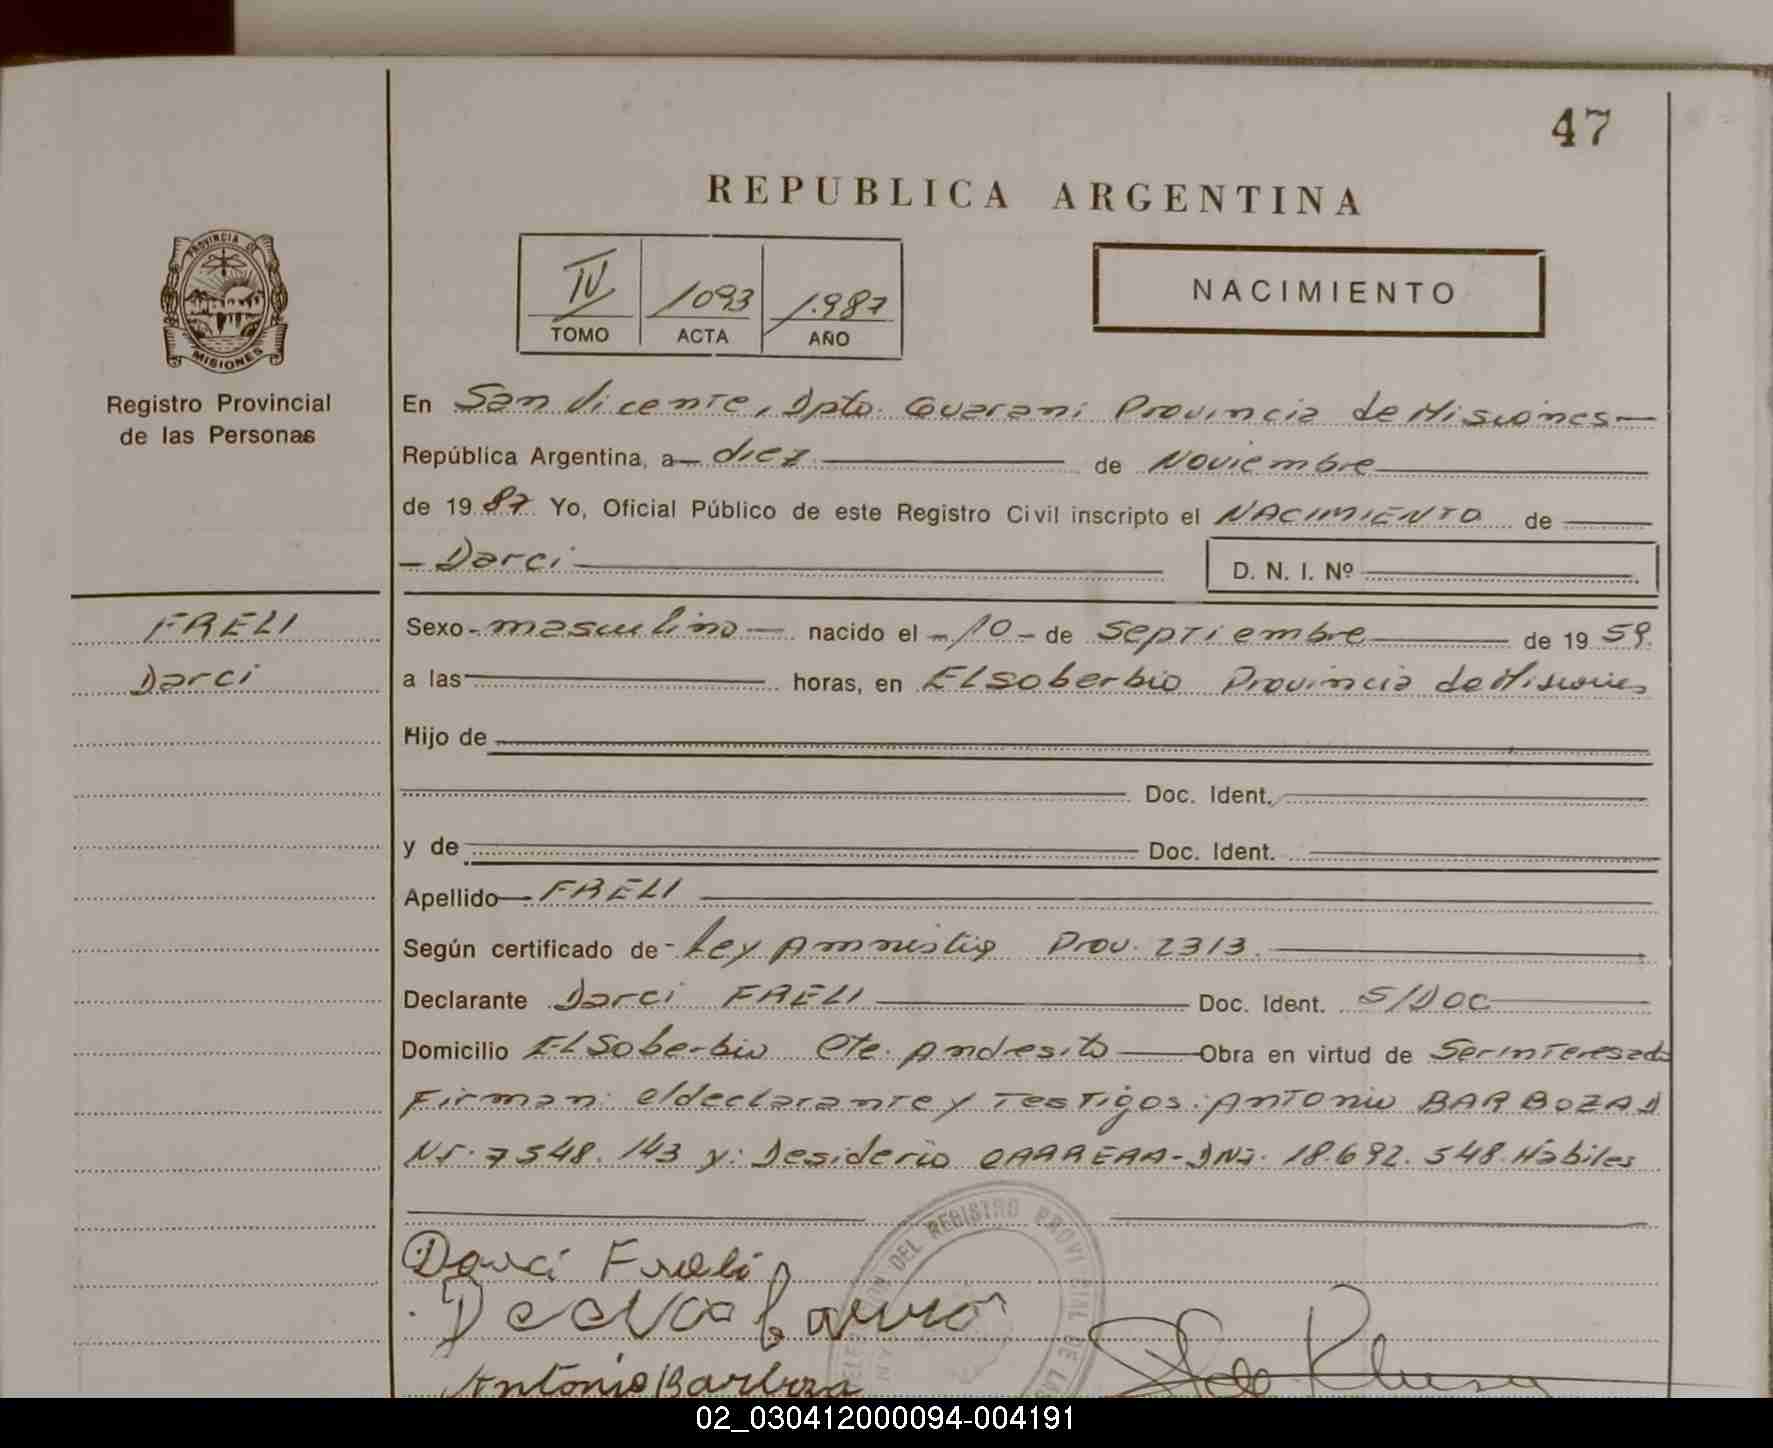 47
REPUBLICA ARGENTINA
PROVINCIA DE
MISIONES
Registro Provincial
de las Personas
IV 1093 1.987
TOMO ACTA AÑO
NACIMIENTO
En San Vicente, Dpto. Guarani Provincia de Misiones
República Argentina, a diez de Noviembre
de 19 87 Yo, Oficial Público de este Registro Civil inscripto el NACIMIENTO de
Darci
D. N. I. Nº
FRELI
Darci
Sexo - masculino nacido el - 10 - de septiembre de 19 59.
a las horas, en El soberbio Provincia de Misiones
Hijo de
Doc. Ident.
y de Doc. Ident.
Apellido FRELI
Según certificado de - Ley Amnistia Prov. 2313.
Declarante Darci FRELI Doc. Ident. S/Doc
Domicilio El Soberbio Cte. Andresito Obra en virtud de Ser interesado
Firman: el declarante y Testigos: Antonio BARBOZA D
NI. 7548.143 y: Desiderio CARRERA - DNI. 18.692.548. Hábiles
DEL REGISTRO PROVINCIAL DE LAS
Darci Freli
Antonio Barboza
02_030412000094-004191